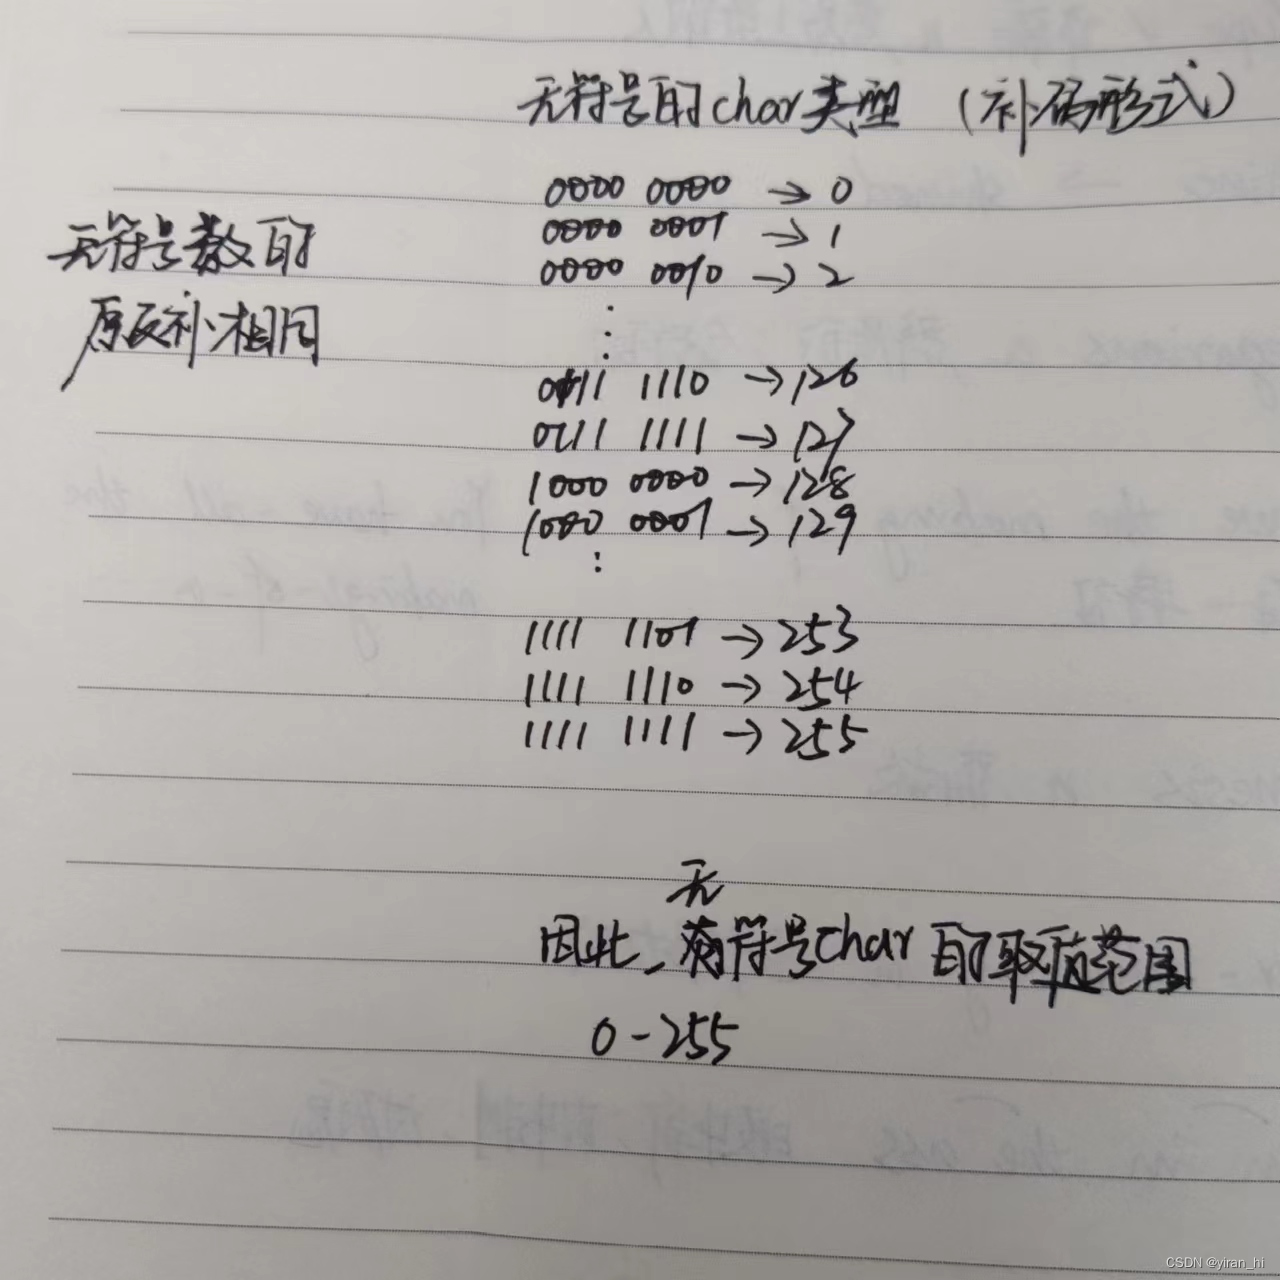 无符号的char类型（补码形式）
0000 0000 → 0
0000 0001 → 1
0000 0010 → 2
无符号数的
原反补相同
⋮
0111 1110 → 126
0111 1111 → 127
1000 0000 → 128
1000 0001 → 129
⋮
1111 1101 → 253
1111 1110 → 254
1111 1111 → 255
无
因此，有符号char的取值范围
0-255
CSDN @yiran_hi